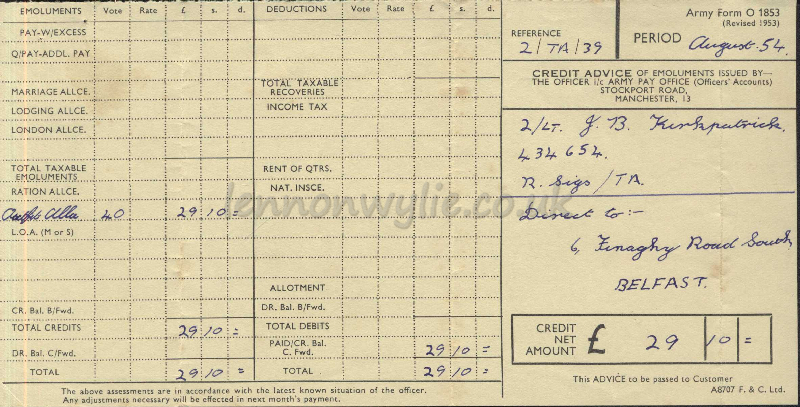 EMOLUMENTS Vote Rate £ s. d.
PAY-W/EXCESS
Q/PAY-ADDL. PAY
MARRIAGE ALLCE.
LODGING ALLCE.
LONDON ALLCE.
TOTAL TAXABLE
EMOLUMENTS
RATION ALLCE.
Outfit Alla 40 29 10 =
L.O.A. (M or S)
CR. Bal. B/Fwd.
TOTAL CREDITS 29 10 =
DR. Bal. C/Fwd.
TOTAL 29 10 =
DEDUCTIONS Vote Rate £ s. d.
TOTAL TAXABLE
RECOVERIES
INCOME TAX
RENT OF QTRS.
NAT. INSCE.
ALLOTMENT
DR. Bal. B/Fwd.
TOTAL DEBITS
PAID/CR. Bal.
C. Fwd. 29 10 =
TOTAL 29 10 =
The above assessments are in accordance with the latest known situation of the officer.
Any adjustments necessary will be effected in next month's payment.
Army Form O 1853
(Revised 1953)
REFERENCE
2/TA/39
PERIOD August. 54.
CREDIT ADVICE OF EMOLUMENTS ISSUED BY—
THE OFFICER i/c ARMY PAY OFFICE (Officers' Accounts)
STOCKPORT ROAD,
MANCHESTER, 13
2/LT. J. B. Kirkpatrick.
434654.
R. Sigs/TA.
Direct to :-
6, Finaghy Road South,
BELFAST.
CREDIT
NET
AMOUNT £ 29 10 =
This ADVICE to be passed to Customer
A8707 F. & C. Ltd.
lennonwylie.co.uk